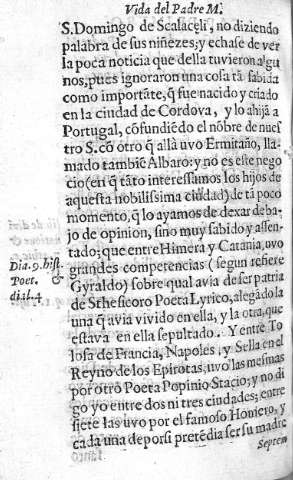 Vida del Padre M.
S. Domingo de Scalaceli, no diziendo
palabra de sus niñezes, y echase de ver
la poca noticia que della tuvieron algu
nos, pues ignoraron una cosa tã sabida
como importãte, q̃ fue nacido y criado
en la ciudad de Cordova, y lo ahijã a
Portugal, cõfundiẽdo el nõbre de nues
tro S. cõ otro q̃ allà uvo Ermitaño, lla-
mado tambiẽ Albaro: y no es este nego
cio (en q̃ tãto interessamos los hijos de
aquesta nobilissima ciudad) de tã poco
momento, q̃ lo ayamos de dexar deba-
jo de opinion, sino muy sabido y assen-
tado; que entre Himera y Catania, uvo
Dia. 9. hist.
Poet.
dial. 4
grandes competencias (segun refiere
Gyraldo) sobre qual avia de ser patria
de Sthesicoro Poeta Lyrico, alegãdo la
una q̃ avia vivido en ella, y la otra, que
estava en ella sepultado. Y entre To
losa de Francia, Napoles, y Sella en el
Reyno de los Epirotas, uvo las mesmas
por otro Poeta Popinio Stacio; y no di
go yo entre dos ni tres ciudades; entre
siete las uvo por el famoso Homero, y
cada una de por si pretẽdia ser su madre
Septem